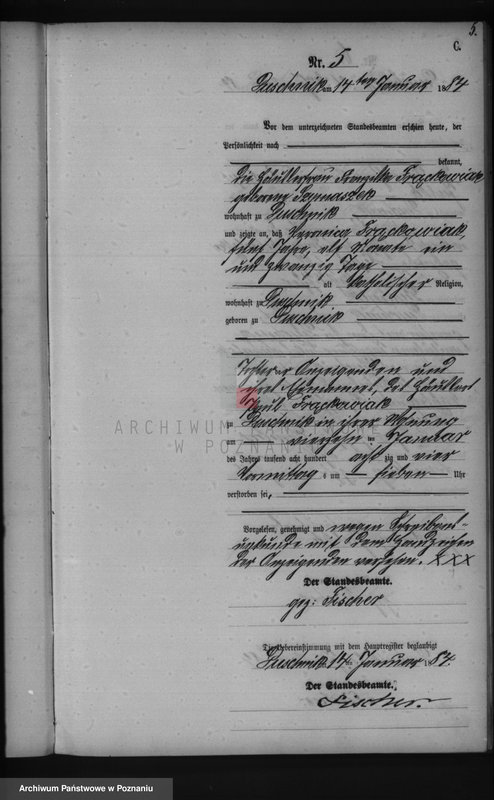 5.
C.
Nr. 5
Duschnik am 14ten Januar 1884
Vor dem unterzeichneten Standesbeamten erschien heute, der
Persönlichkeit nach
bekannt,
die Häuslerfrau Franziska Frąckowiak
geborene
wohnhaft zu Duschnik
und zeigte an, daß Frąckowiak,
fünf Jahre, elf Monate ein
und zwanzig Tage
alt katholischer Religion,
wohnhaft zu Duschnik
geboren zu Duschnik
Tochter der Anzeigenden und
ihres Ehemannes, des Häuslers
Frąckowiak
zu Duschnik in ihrer Wohnung
am vierzehn ten Januar
des Jahres tausend acht hundert acht zig und vier
Vormittags um sieben Uhr
verstorben sei,
Vorgelesen, genehmigt und wegen Schreibens-
unkunde mit dem Handzeichen
der Anzeigenden versehen. XXX
Der Standesbeamte.
gez: Fischer
Die Uebereinstimmung mit dem Hauptregister beglaubigt
Duschnik 14. Januar 1884
Der Standesbeamte.
Fischer.
ARCHIWUM PAŃSTWOWE
W POZNANIU
Archiwum Państwowe w Poznaniu